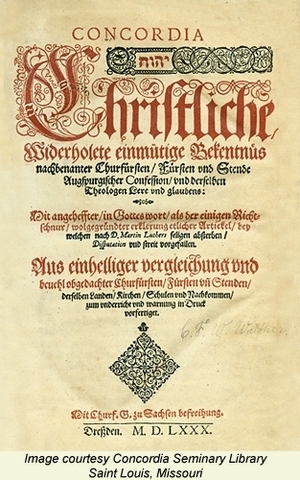 CONCORDIA
יהוה
Christliche/
Widerholete einmütige Bekentnüs
nachbenanter Churfürsten/ Fürsten vnd Stende
Augspurgischer Confession/ vnd derselben
Theologen Lere vnd glaubens:
Mit angeheffter/ in Gottes wort/ als der einigen Richt-
schnur/ wolgegründter erklerung etlicher Artickel/ bey
welchen nach D. Martin Luthers seligen absterben/
Disputation vnd streit vorgefallen.
Aus einhelliger vergleichung vnd
beuehl obgedachter Churfürsten/ Fürsten vñ Stenden/
derselben Landen/ Kirchen/ Schulen vnd Nachkommen/
zum vnderricht vnd warnung in Druck
vorfertiget.
C. F. W.
Mit Churf. G. zu Sachsen befreihung.
Dreßden. M. D. LXXX.
Image courtesy Concordia Seminary Library
Saint Louis, Missouri